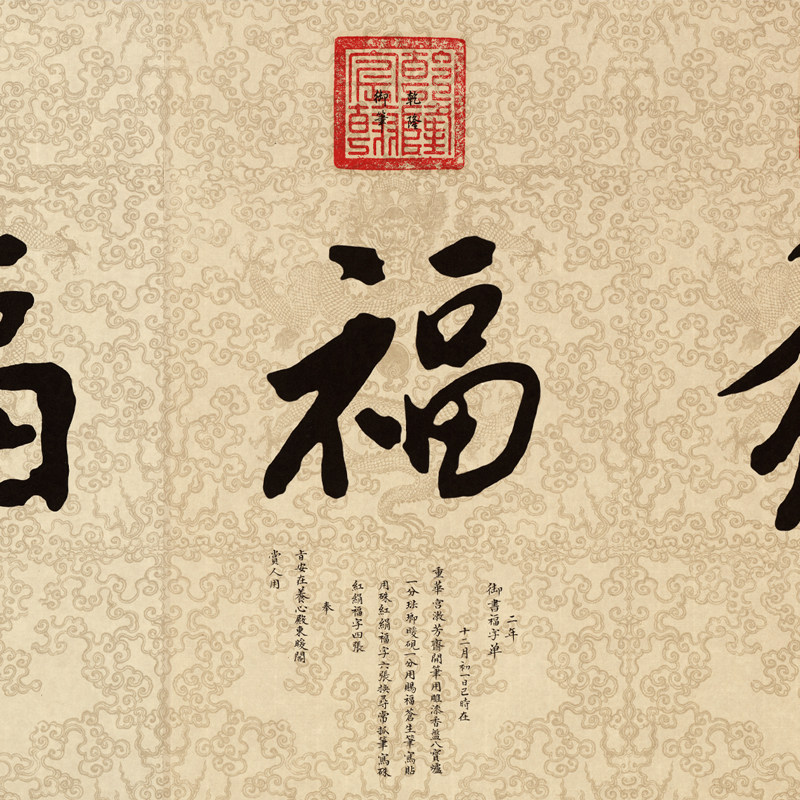 乾隆
御筆
乾隆
宸翰
福
福
二年
御書福字单
十二月初一日巳時在
重華宮漱芳齋開筆用雕漆香盤八寶爐
一分琺瑯暖硯一分用賜福蒼生筆寫貼
用硃紅絹福字六張換尋常祇筆寫硃
紅絹福字四張
奉
旨安在養心殿東暖閣
賞人用